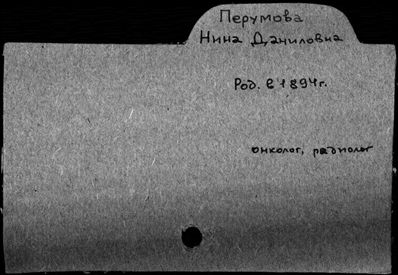 Перумова
Нина Даниловна
Род. в 1894г.
онколог, радиолог